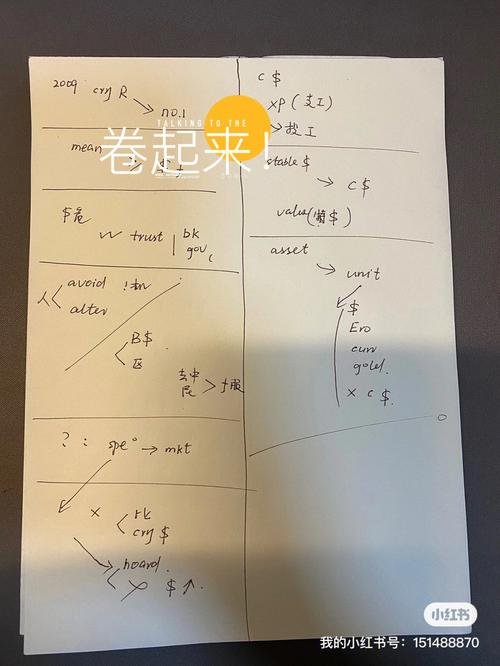 2009 cry R
→ no.1
TALKING TO THE
卷起来！
mean
$危
trust | bk
gov,
人< avoid
alter
B$
区
去中
民 > 服
? : spe° → mkt
×
cry $
hoard.
$ ↑.
c $
xp (支工)
→ 投工
stable $
→ c $
value(懒$)
asset
→ unit
$
Ero
curr
gold.
× c $.
小红书
我的小红书号：151488870